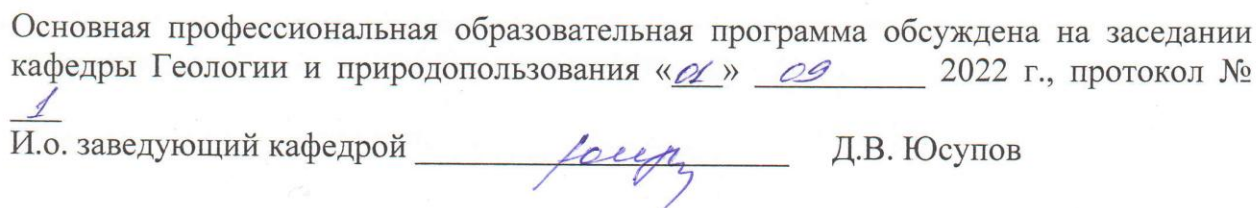 Основная профессиональная образовательная программа обсуждена на заседании
кафедры Геологии и природопользования «01» 09 2022 г., протокол №
1
И.о. заведующий кафедрой Д.В. Юсупов